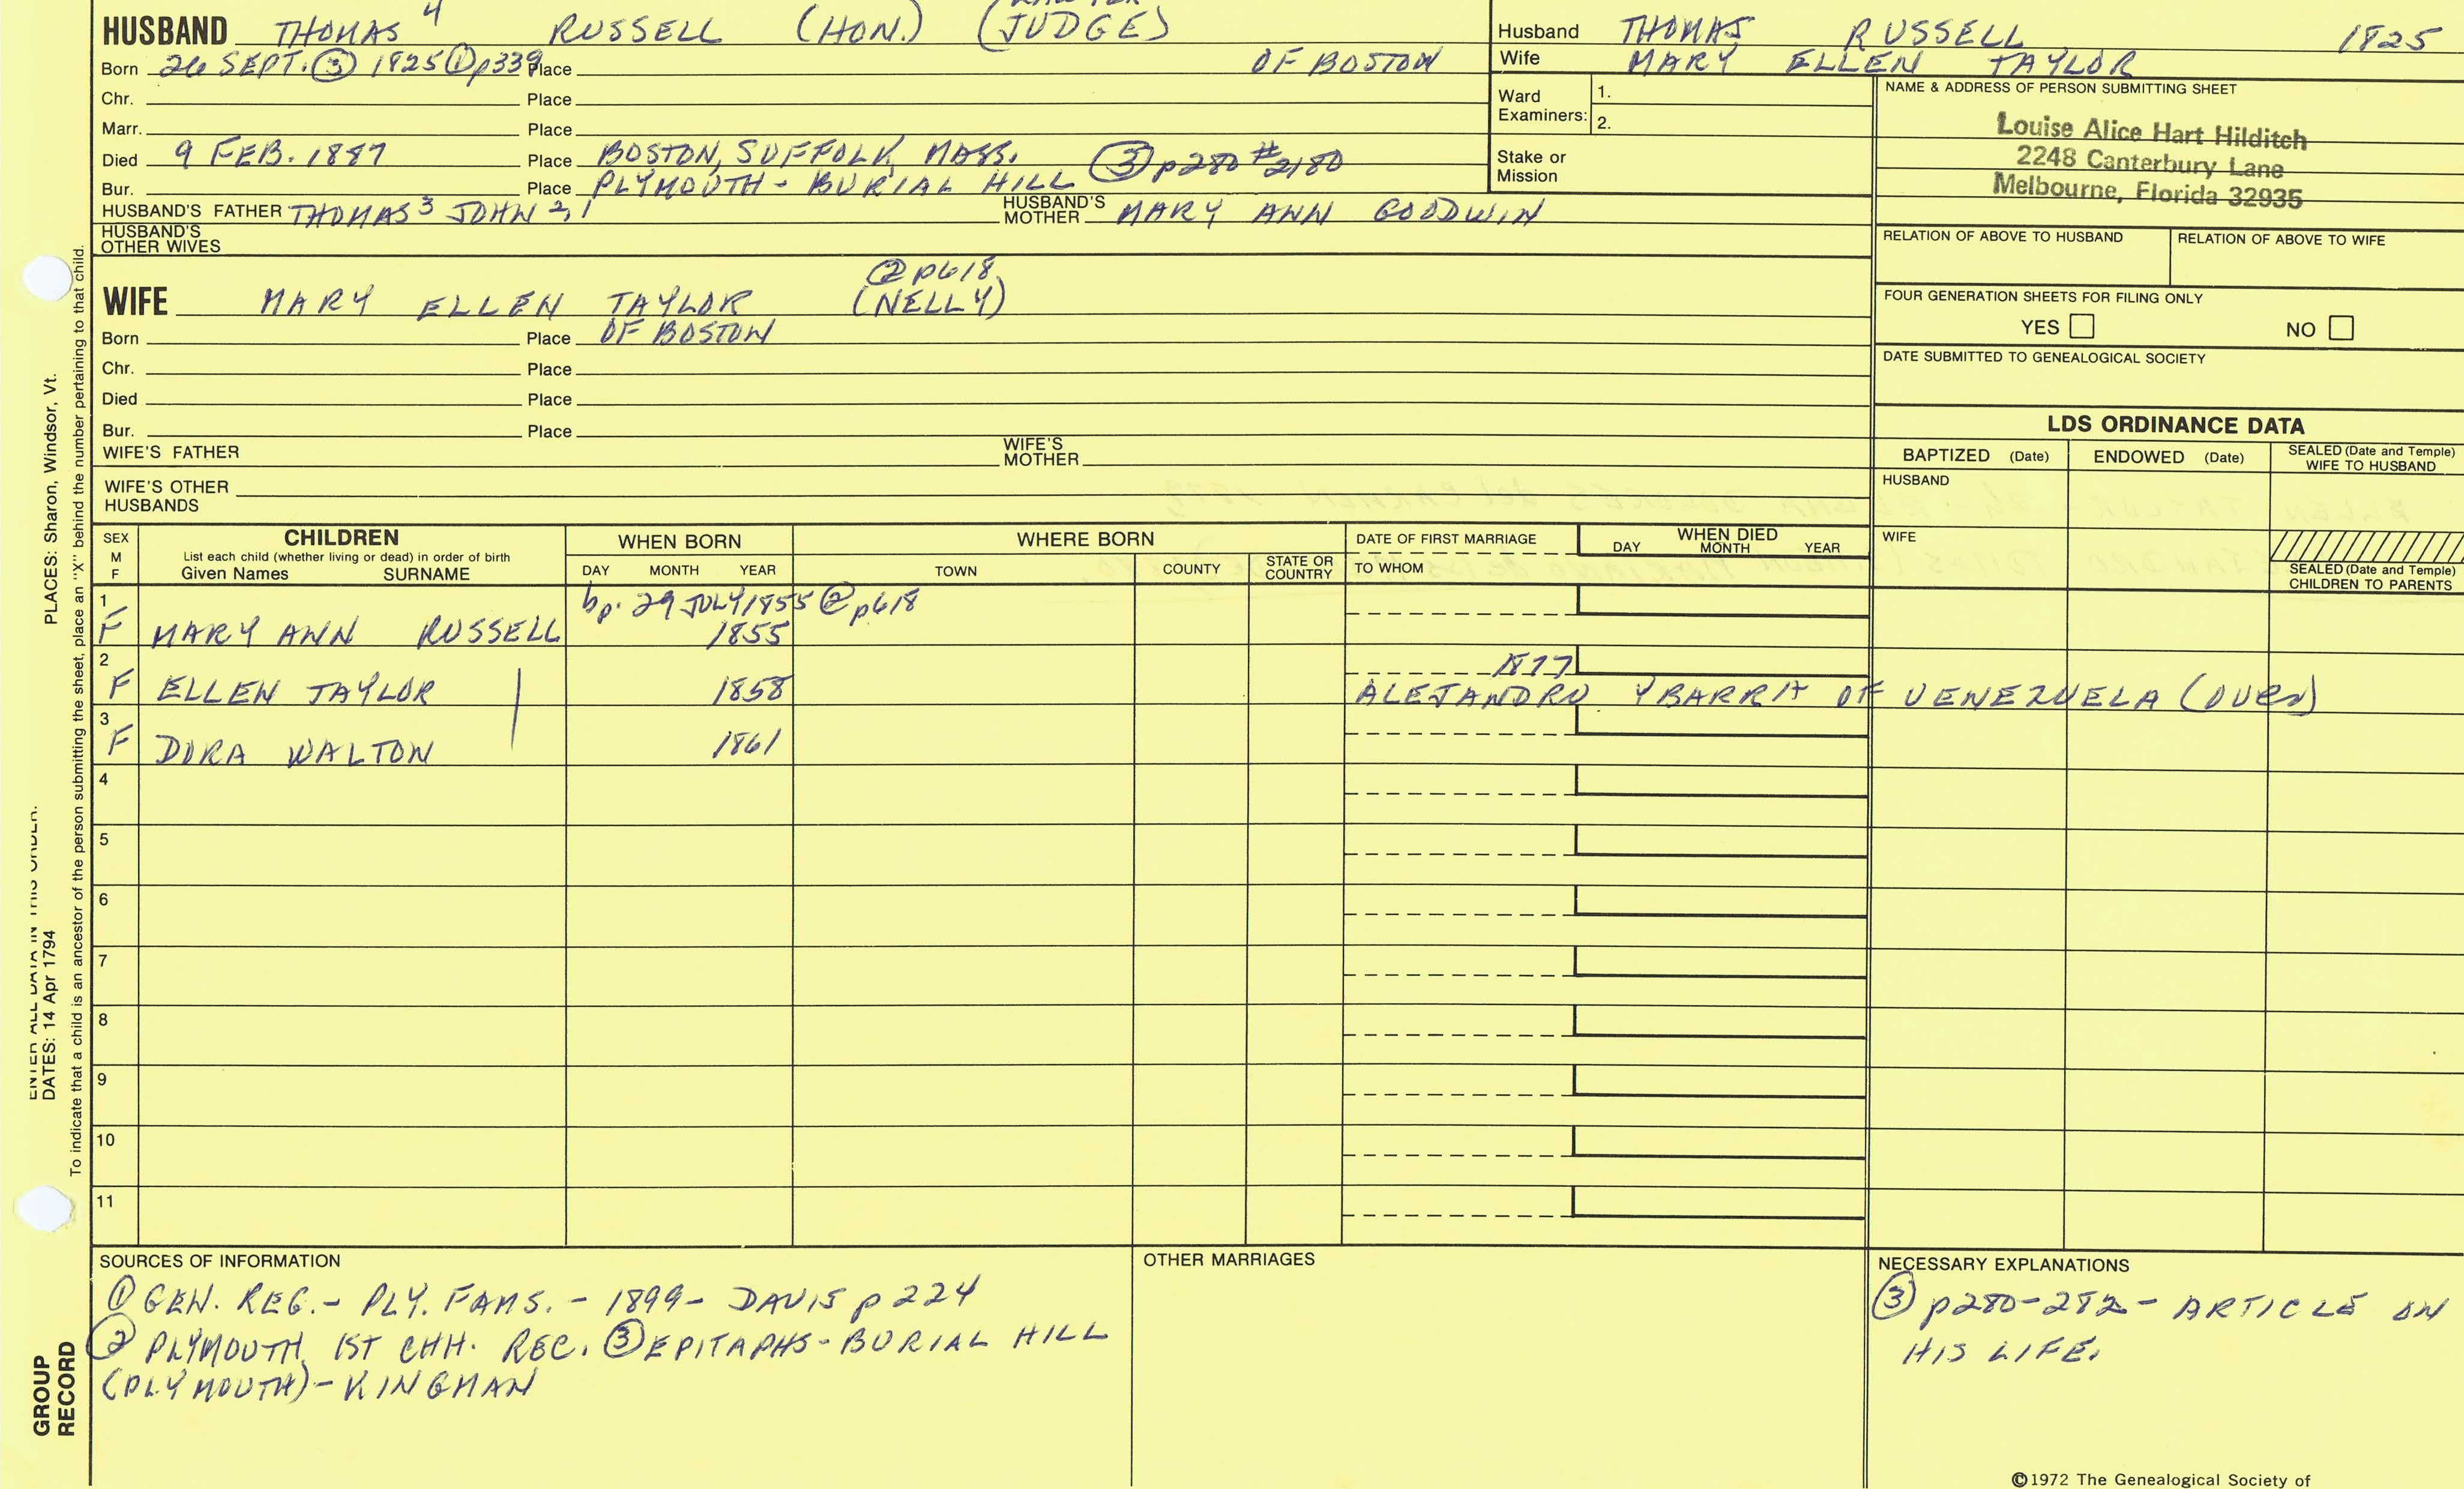 HUSBAND THOMAS 4 RUSSELL (HON.) (JUDGE)
Born 26 SEPT. ③ 1825 ① p339 Place OF BOSTON
Chr. Place
Marr. Place
Died 9 FEB. 1887 Place BOSTON, SUFFOLK, MASS. ③ p280 #2180
Bur. Place PLYMOUTH - BURIAL HILL
HUSBAND'S FATHER THOMAS 3 JOHN 2,1 HUSBAND'S MOTHER MARY ANN GOODWIN
HUSBAND'S OTHER WIVES
② p618
WIFE MARY ELLEN TAYLOR (NELLY)
Born Place OF BOSTON
Chr. Place
Died Place
Bur. Place
WIFE'S FATHER WIFE'S MOTHER
WIFE'S OTHER HUSBANDS
Husband THOMAS RUSSELL 1825
Wife MARY ELLEN TAYLOR
Ward Examiners: 1.
2.
Stake or Mission
NAME & ADDRESS OF PERSON SUBMITTING SHEET
Louise Alice Hart Hilditch
2248 Canterbury Lane
Melbourne, Florida 32935
RELATION OF ABOVE TO HUSBAND RELATION OF ABOVE TO WIFE
FOUR GENERATION SHEETS FOR FILING ONLY
YES NO
DATE SUBMITTED TO GENEALOGICAL SOCIETY
LDS ORDINANCE DATA
BAPTIZED (Date) ENDOWED (Date) SEALED (Date and Temple) WIFE TO HUSBAND
HUSBAND
WIFE
SEALED (Date and Temple) CHILDREN TO PARENTS
SEX M F
CHILDREN
List each child (whether living or dead) in order of birth
Given Names SURNAME
WHEN BORN
DAY MONTH YEAR
WHERE BORN
TOWN COUNTY STATE OR COUNTRY
DATE OF FIRST MARRIAGE
TO WHOM
WHEN DIED
DAY MONTH YEAR
1 bp. 29 JULY 1855 ② p618
F MARY ANN RUSSELL 1855
2 1877
F ELLEN TAYLOR | 1858 ALEJANDRO YBARRA OF VENEZUELA (OVER)
3
F DORA WALTON 1861
4
5
6
7
8
9
10
11
SOURCES OF INFORMATION
① GEN. REG. - PLY. FAMS. - 1899 - DAVIS p 224
② PLYMOUTH 1ST CHH. REC. ③ EPITAPHS - BURIAL HILL
(PLYMOUTH) - KINGMAN
OTHER MARRIAGES
NECESSARY EXPLANATIONS
③ p280-282 - ARTICLE ON
HIS LIFE.
©1972 The Genealogical Society of
PLACES: Sharon, Windsor, Vt.
ENTER ALL DATA IN THIS ORDER.
DATES: 14 Apr 1794
To indicate that a child is an ancestor of the person submitting the sheet, place an "X" behind the number pertaining to that child.
GROUP
RECORD